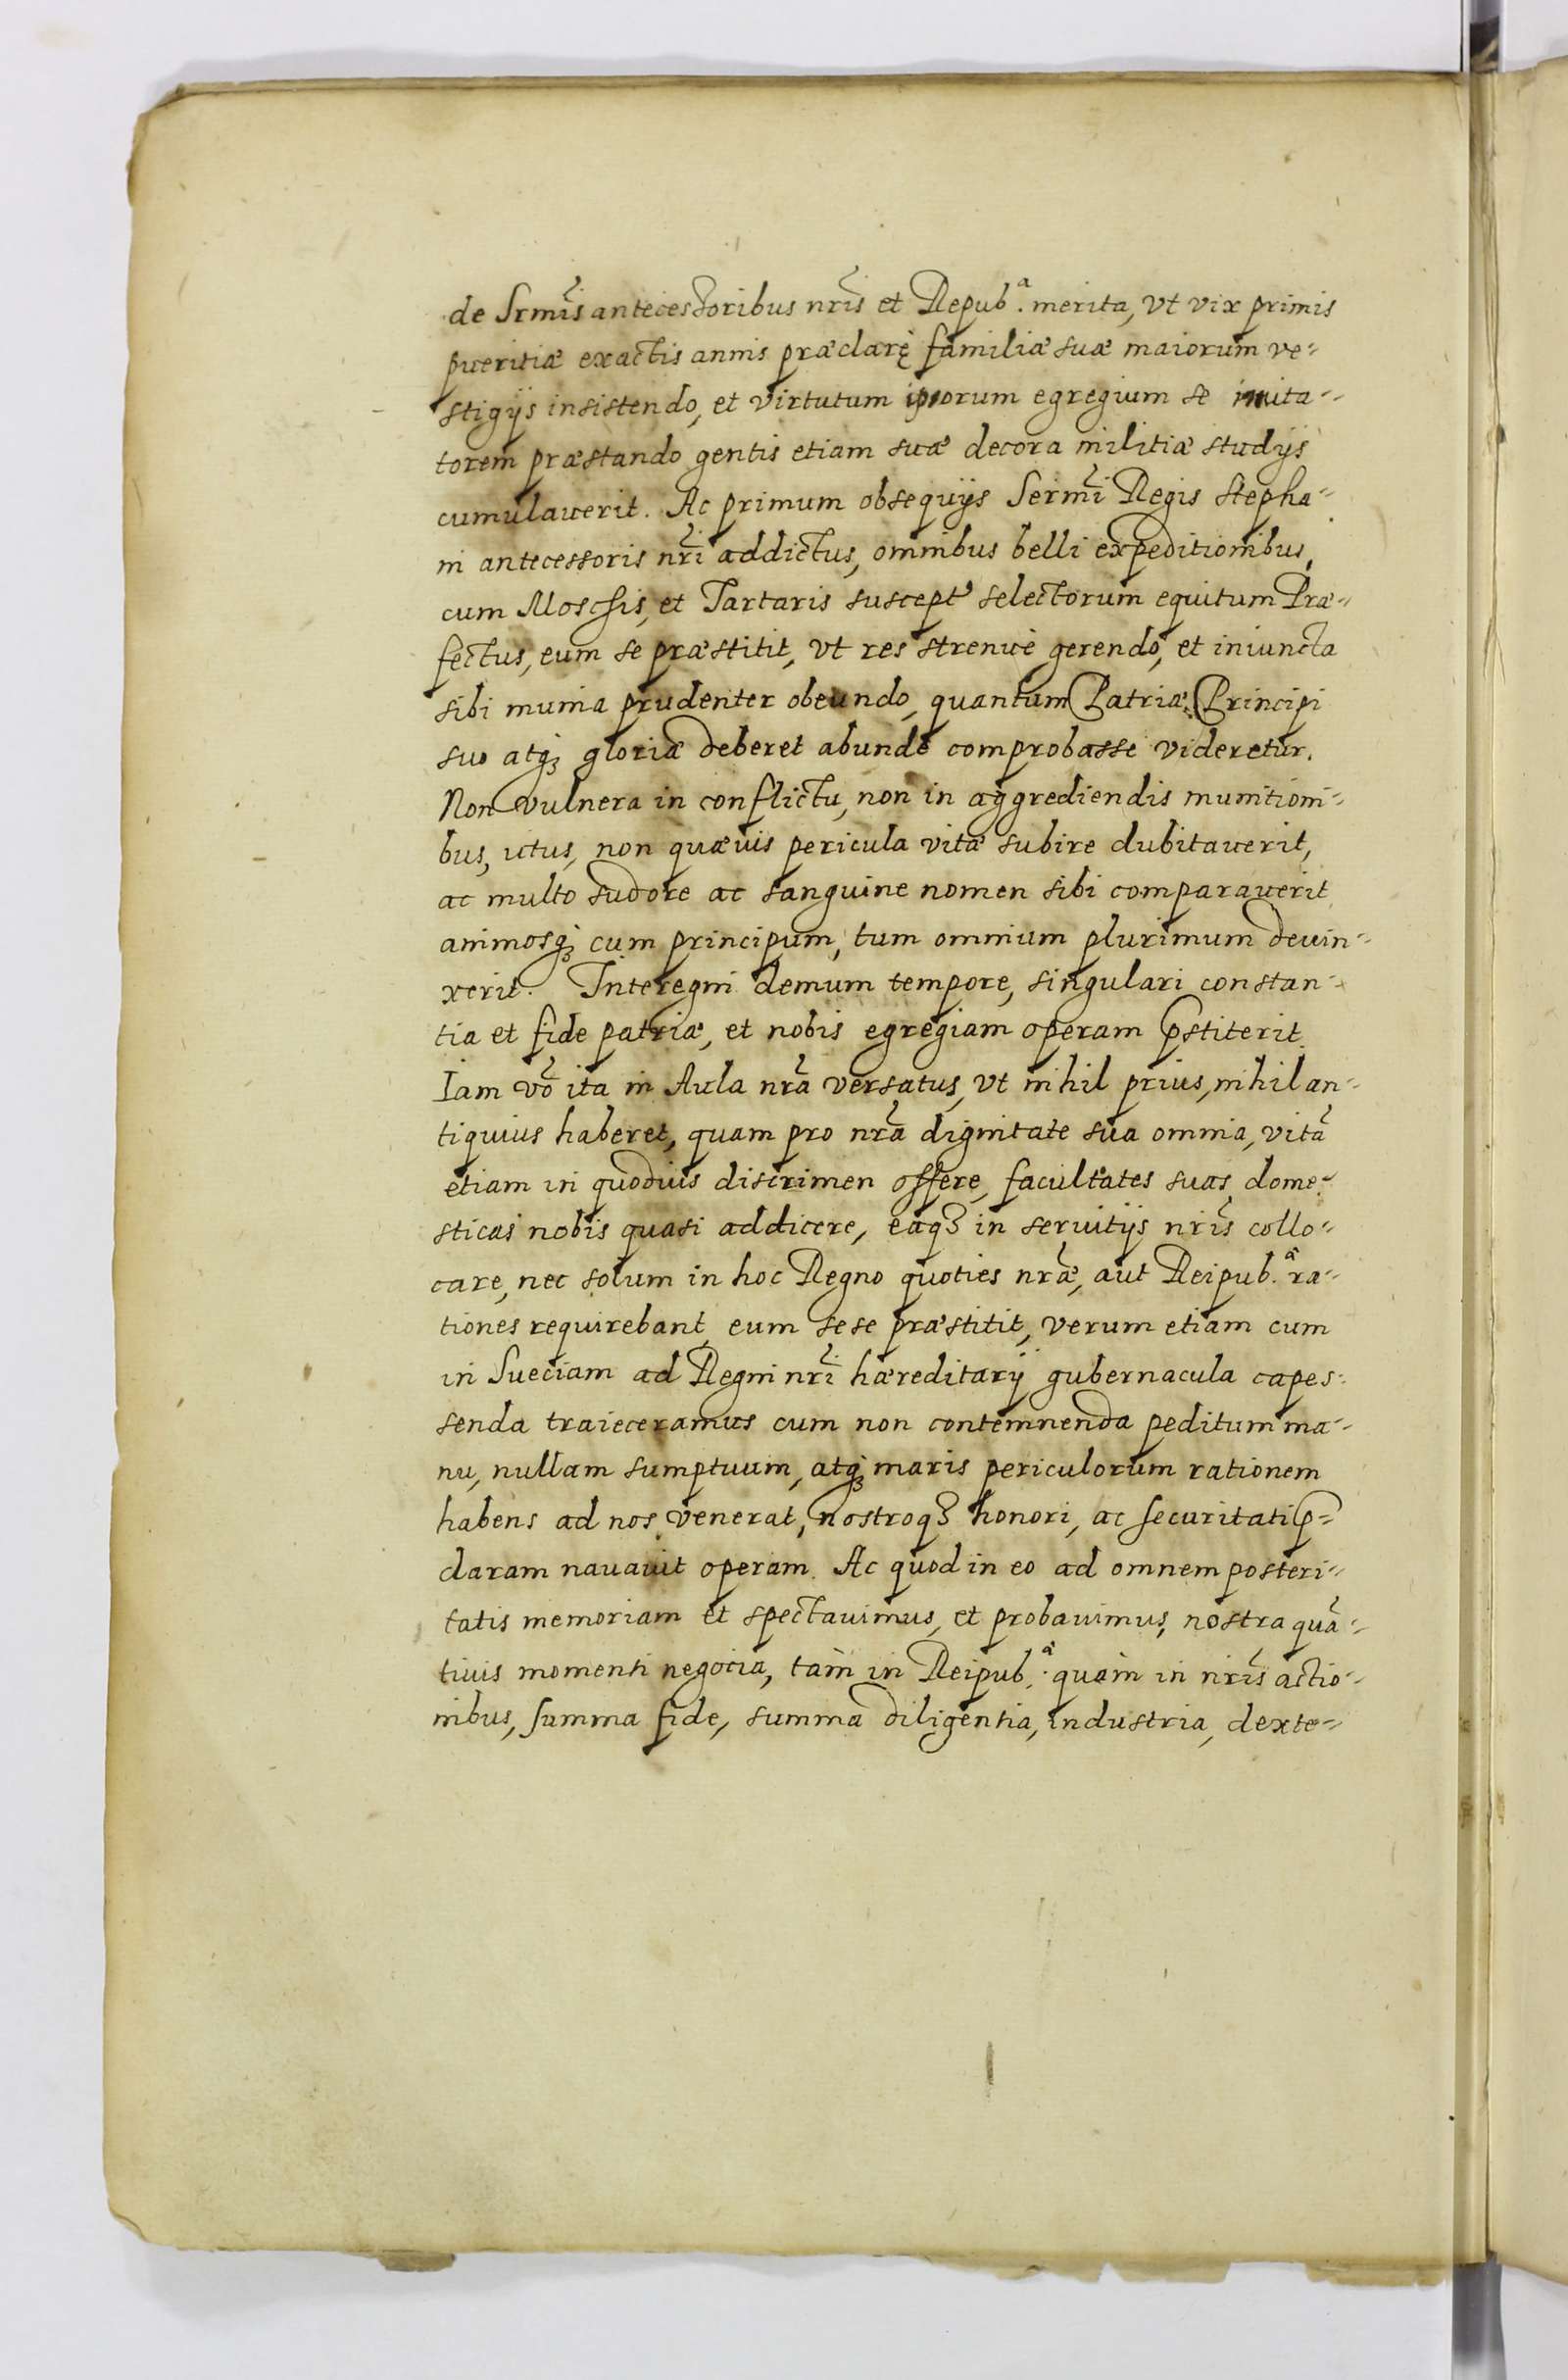 de Srm̃is antecessoribus nr̃is et Repub.ª merita, vt vix primis
pueritiæ exactis annis præclarę familiæ suæ maiorum ve=
stigijs insistendo, et virtutum ipsorum egregium se imita=
torem præstando gentis etiam suæ decora militiæ studijs
cumulauerit. Ac primum obsequijs Serm̃i Regis Stepha=
ni antecessoris nr̃i addictus, omnibus belli expeditionibus,
cum Moschis, et Tartaris suscept⁹ selectorum equitum Præ=
fectus, eum se præstitit, vt res strenuè gerendo, et iniuncta
sibi munia prudenter obeundo, quantum Patriæ, Principi
suo atq; gloriæ deberet abundè comprobasse videretur.
Non vulnera in conflictu, non in aggrediendis munitioni=
bus, ictus, non quæuis pericula vitæ subire dubitauerit,
ac multo sudore ac sanguine nomen sibi comparauerit
animosq; cum principum, tum omnium plurimum deuin=
xerit. Interegni demum tempore, singulari constan=
tia et fide patriæ, et nobis egregiam operam p̃stiterit.
Iam võ ita in Aula nr̃a versatus, vt nihil prius, nihil an=
tiquius haberet, quam pro nr̃a dignitate sua omnia, vitã
etiam in quoduis discrimen offere, facultates suas dome=
sticas nobis quasi addicere, eaq; in seruitijs nr̃is collo=
care, nec solum in hoc Regno quoties nr̃æ, aut Reipub.ª ra=
tiones requirebant, eum sese præstitit, verum etiam cum
in Sueciam ad Regni nr̃i hæreditarij gubernacula capes=
senda traieceramus cum non contemnenda peditum ma=
nu, nullam sumptuum, atq; maris periculorum rationem
habens ad nos venerat, nostroq; honori, ac securitati p̃=
claram nauauit operam. Ac quod in eo ad omnem posteri=
tatis memoriam et spectauimus, et probauimus, nostra quã=
tiuis momenti negocia, tàm in Reipub.ª quàm in nr̃is actio=
nibus, summa fide, summa diligentia, industria, dexte=